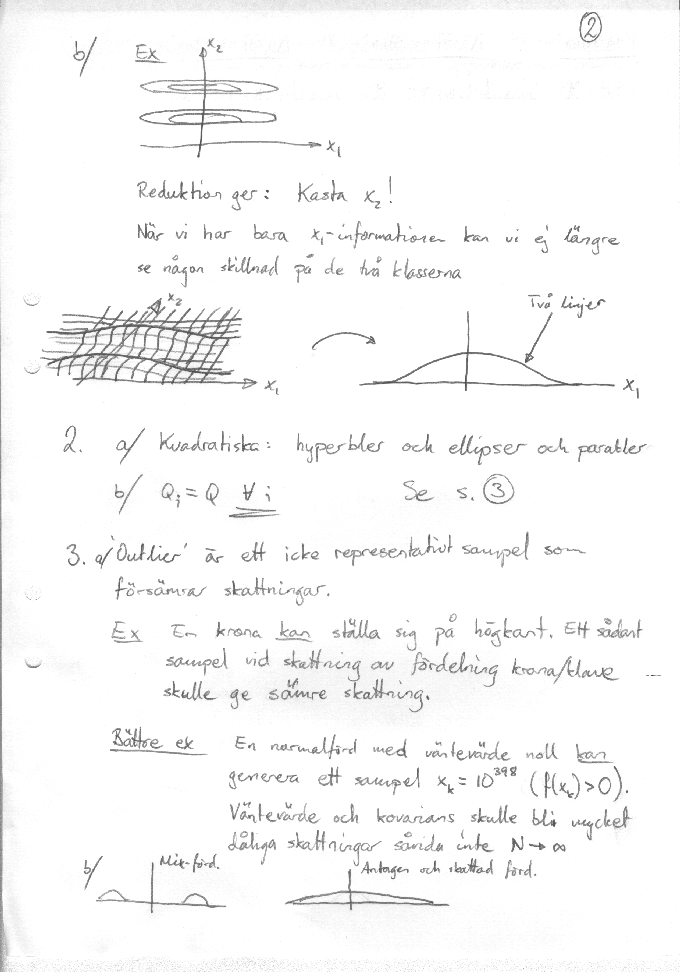 2
b/ Ex x₂
x₁
Reduktion ger: Kasta x₂!
När vi har bara x₁-informationen kan vi ej längre
se någon skillnad på de två klasserna
x₂
Två linjer
x₁
x₁
2. a/ Kvadratiska: hyperbler och ellipser och parabler
b/ Qᵢ = Q ∀ i Se s. 3
3. a/ 'Outlier' är ett icke representativt sampel som
försämrar skattningar.
Ex En krona kan ställa sig på högkant. Ett sådant
sampel vid skattning av fördelning krona/klave
skulle ge sämre skattning.
Bättre ex En normalförd med väntevärde noll kan
generera ett sampel xₖ = 10³⁹⁸ (f(xₖ)>0).
Väntevärde och kovarians skulle bli mycket
dåliga skattningar såvida inte N → ∞
b/ Mix-förd. Antagen och skattad förd.